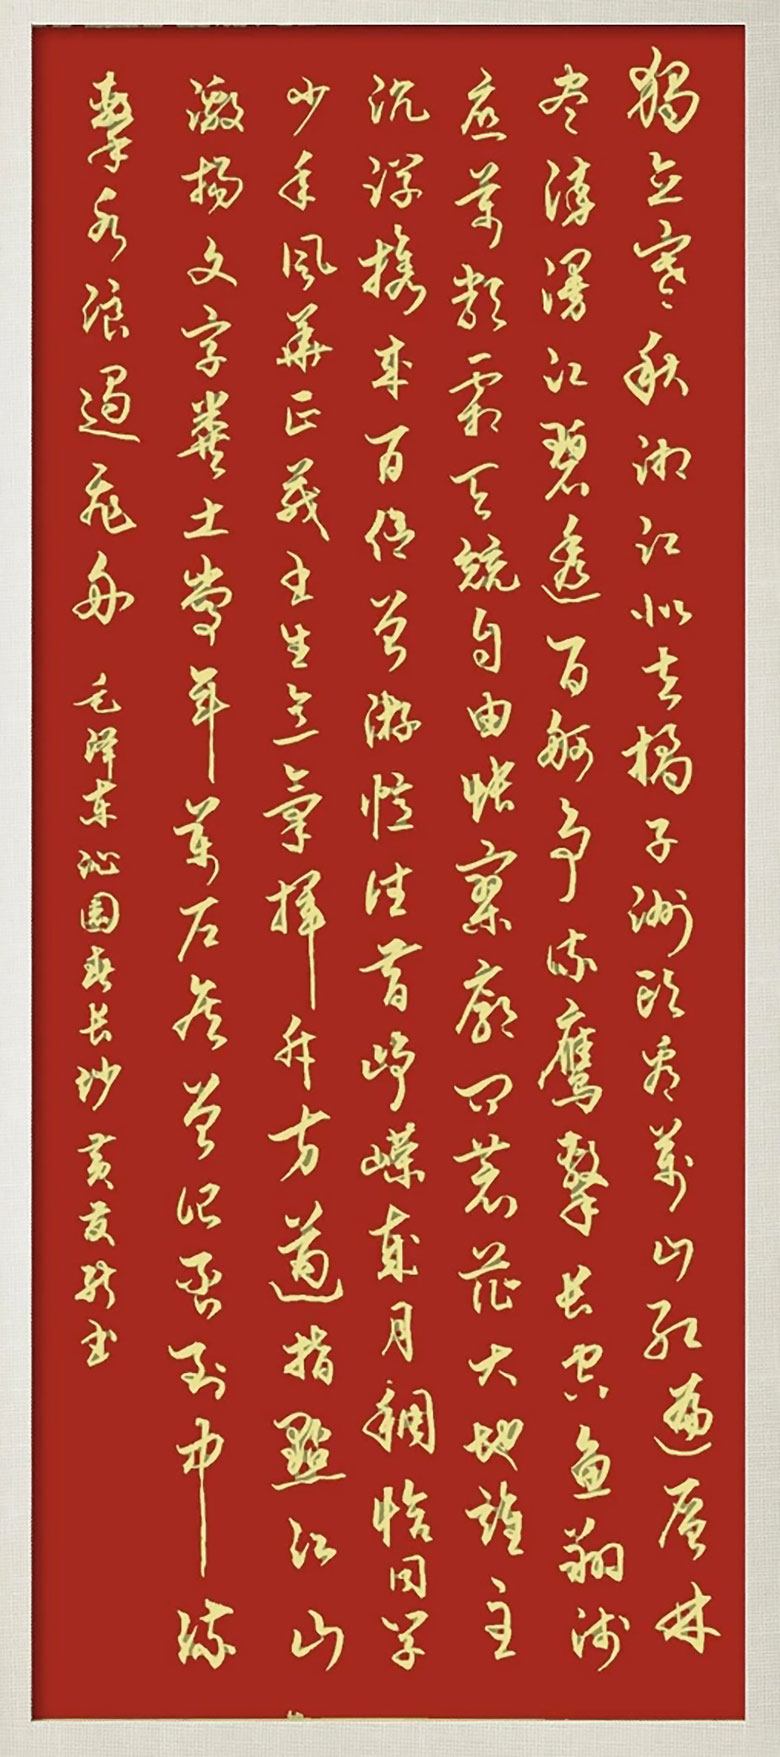 獨立寒秋湘江北去橘子洲头看萬山红遍层林
尽染漫江碧透百舸争流鹰擊长空鱼翔浅
底萬類霜天競自由悵寥廓问蒼茫大地誰主
沉浮攜来百侣曾游憶往昔峥嵘歲月稠恰同学
少年風華正茂书生意氣揮斥方遒指點江山
激揚文字糞土當年萬户侯曾记否到中流
擊水浪遏飛舟 毛泽东沁园春长沙 黄书